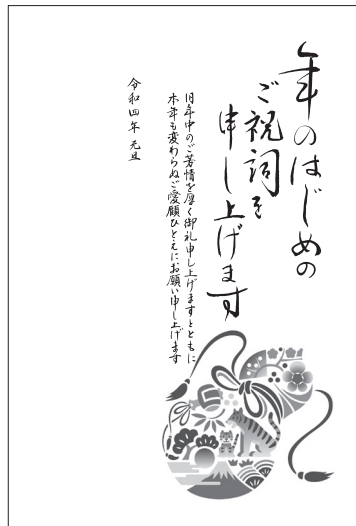 年のはじめの
ご祝詞を
申し上げます
旧年中のご芳情を厚く御礼申し上げますとともに
本年も変わらぬご愛顧ひとえにお願い申し上げます
令和四年 元旦